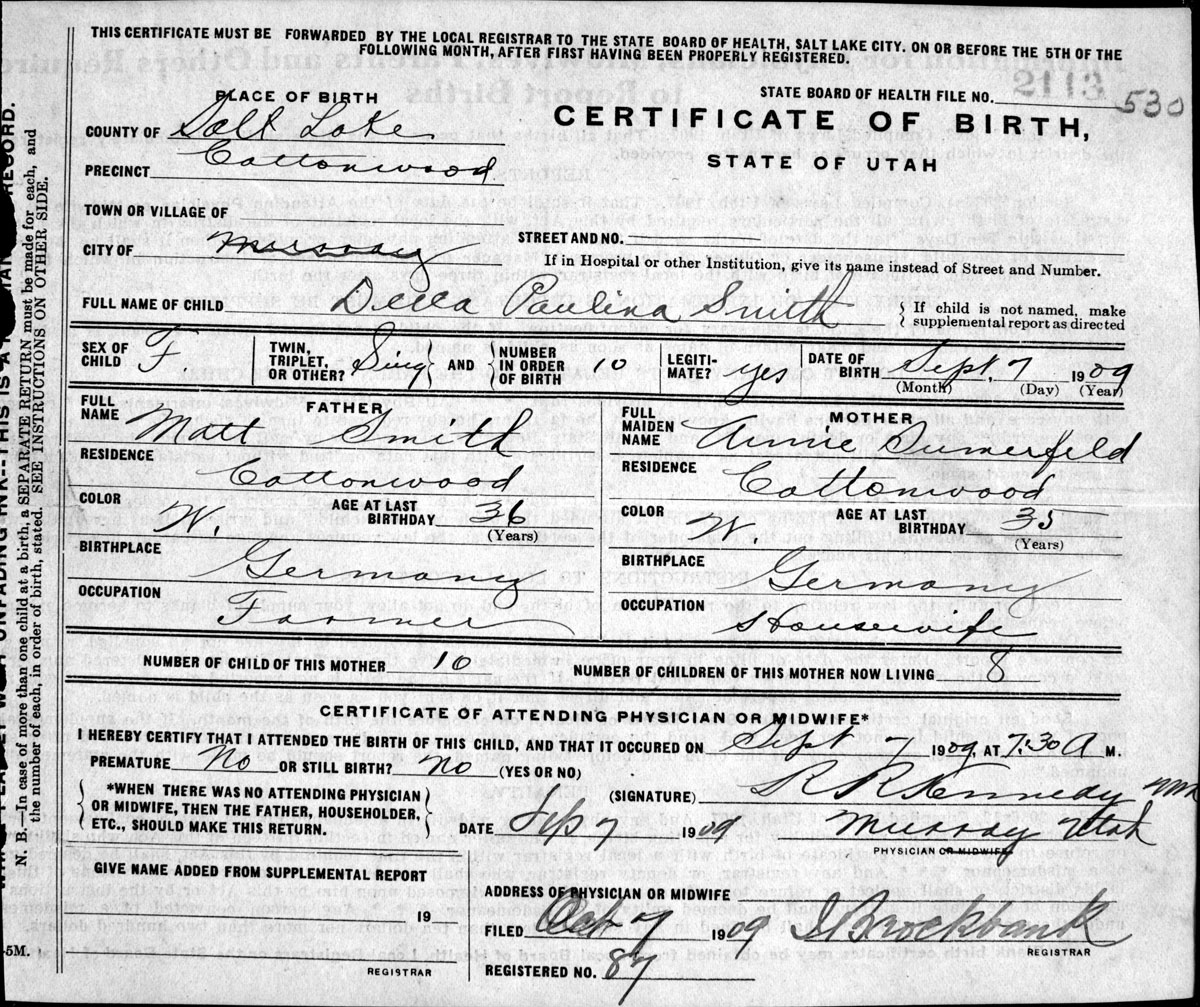 THIS CERTIFICATE MUST BE FORWARDED BY THE LOCAL REGISTRAR TO THE STATE BOARD OF HEALTH, SALT LAKE CITY. ON OR BEFORE THE 5TH OF THE
FOLLOWING MONTH, AFTER FIRST HAVING BEEN PROPERLY REGISTERED.
PLACE OF BIRTH
STATE BOARD OF HEALTH FILE NO. 530
COUNTY OF Salt Lake
CERTIFICATE OF BIRTH,
PRECINCT Cottonwood
STATE OF UTAH
TOWN OR VILLAGE OF
STREET AND NO.
CITY OF Murray
If in Hospital or other Institution, give its name instead of Street and Number.
FULL NAME OF CHILD Della Paulina Smith { If child is not named, make
supplemental report as directed
SEX OF CHILD F TWIN, TRIPLET, OR OTHER? Sing AND NUMBER IN ORDER OF BIRTH 10 LEGITI- MATE? yes DATE OF BIRTH Sept, 7 1909
(Month) (Day) (Year)
FATHER
FULL NAME Matt Smith
RESIDENCE Cottonwood
COLOR W. AGE AT LAST BIRTHDAY 36
(Years)
BIRTHPLACE Germany
OCCUPATION Farmer
MOTHER
FULL MAIDEN NAME Annie Sumerfeld
RESIDENCE Cottonwood
COLOR W AGE AT LAST BIRTHDAY 35
(Years)
BIRTHPLACE Germany
OCCUPATION Housewife
NUMBER OF CHILD OF THIS MOTHER 10 NUMBER OF CHILDREN OF THIS MOTHER NOW LIVING 8
CERTIFICATE OF ATTENDING PHYSICIAN OR MIDWIFE*
I HEREBY CERTIFY THAT I ATTENDED THE BIRTH OF THIS CHILD, AND THAT IT OCCURED ON Sept 7 1909, AT 7:30 A M.
PREMATURE No OR STILL BIRTH? No (YES OR NO)
*WHEN THERE WAS NO ATTENDING PHYSICIAN
OR MIDWIFE, THEN THE FATHER, HOUSEHOLDER,
ETC., SHOULD MAKE THIS RETURN.
(SIGNATURE) R R Kennedy
DATE Sep 7 1909 Murray Utah
PHYSICIAN OR MIDWIFE
GIVE NAME ADDED FROM SUPPLEMENTAL REPORT
19
REGISTRAR
ADDRESS OF PHYSICIAN OR MIDWIFE
FILED Oct 1909 Brockbank
REGISTRAR
REGISTERED NO. 87
N. B.-In case of more than one child at a birth, a SEPARATE RETURN must be made for each, and
the number of each, in order of birth, stated. SEE INSTRUCTIONS ON OTHER SIDE.
UNFADING INK--THIS IS A
RECORD.
5M.